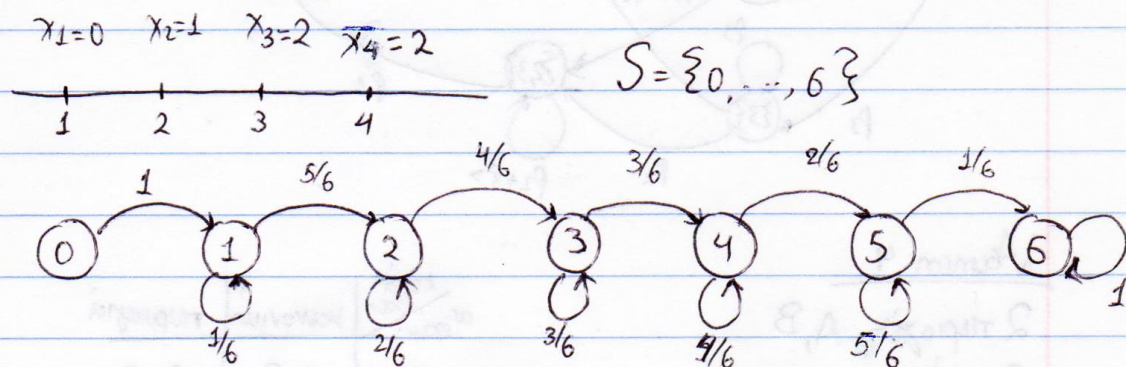 x₁=0 x₂=1 x₃=2 x₄=2
S={0,...,6}
1 2 3 4
1 5/6 4/6 3/6 2/6 1/6
0 1 2 3 4 5 6
1/6 2/6 3/6 4/6 5/6 1